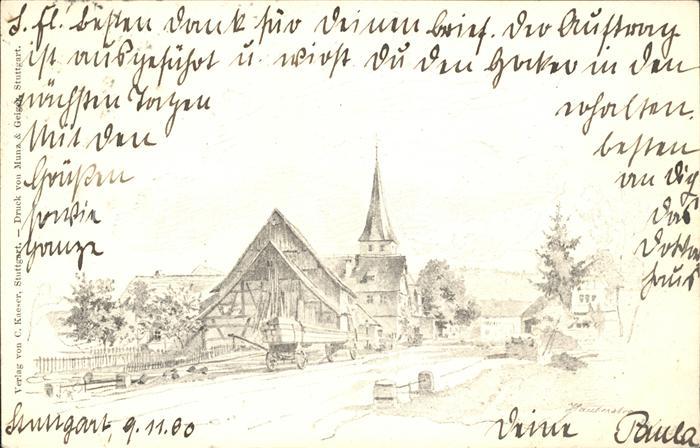 L. Fl. besten Dank für Deinen Brief. Der Auftrag
ist ausgeführt u. wirst Du den Hocker in den
nächsten Tagen erhalten.
Mit den besten
Grüßen an Dich
sowie das
ganze
haus
Stuttgart, 9.11.00 Deine
Verlag von C. Kaeser, Stuttgart. — Druck von Munz & Geiger, Stuttgart.